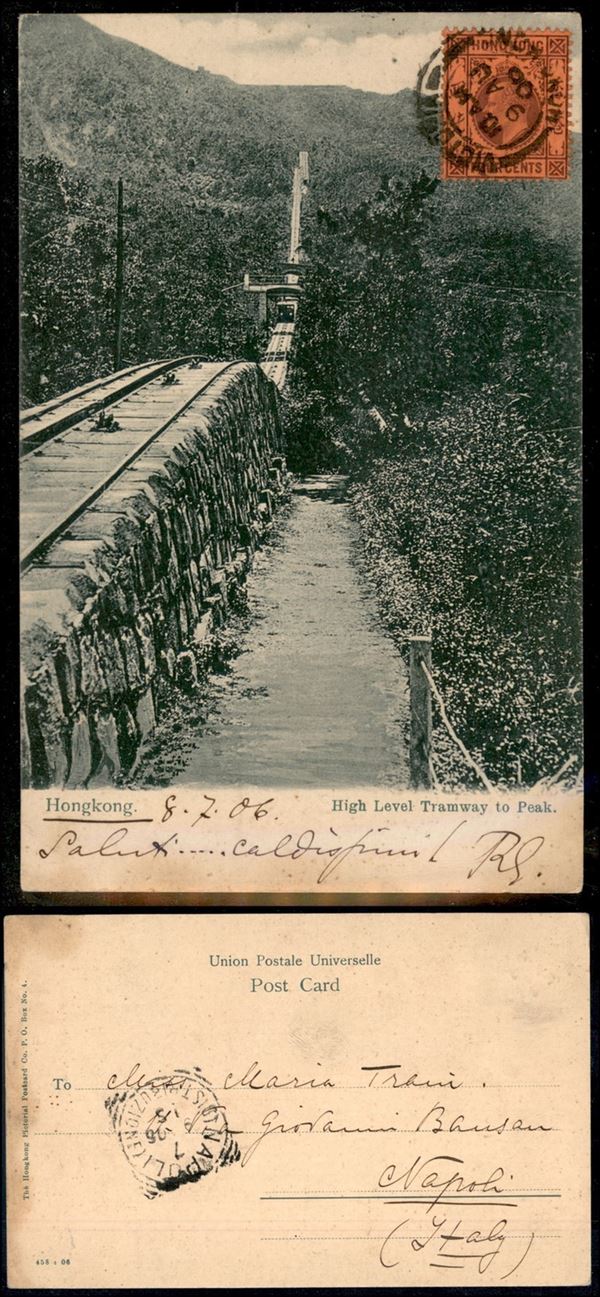 HONG KONG
VICTORIA
9 AU
06
FOUR CENTS
Hongkong. 8.7.06.
High Level Tramway to Peak.
Saluti.....caldissimi!
Union Postale Universelle
Post Card
The Hongkong Pictorial Postcard Co. P. O. Box No. 4.
To Miss Maria Train.
Via Giovanni Bausan
NAPOLI
7
06
Napoli
(Italy)
458 : 06